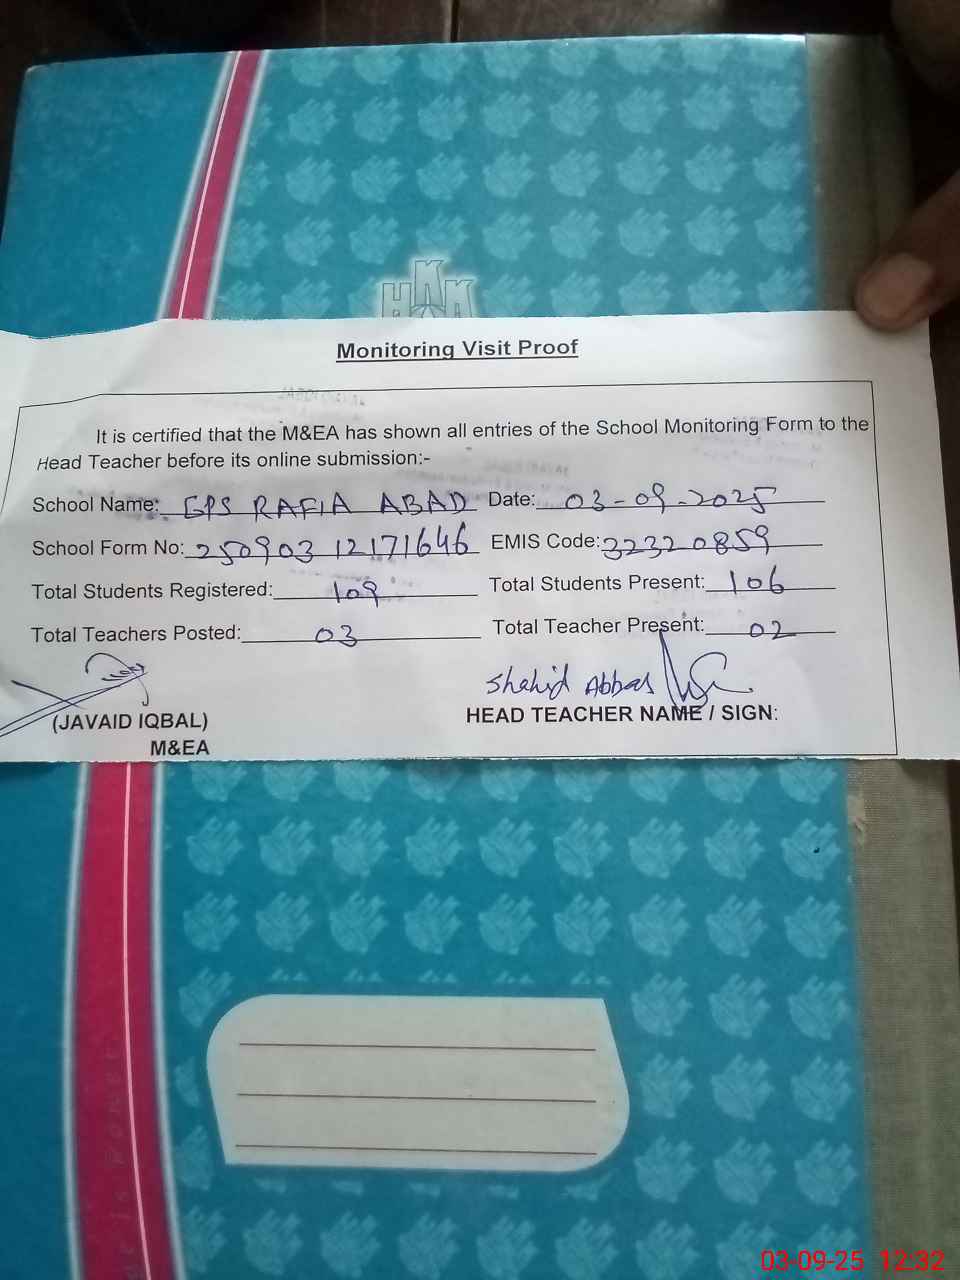 HKK
Monitoring Visit Proof
It is certified that the M&EA has shown all entries of the School Monitoring Form to the
Head Teacher before its online submission:-
School Name: GPS RAFIA ABAD Date: 03-09-2025
School Form No: 25090312171646 EMIS Code: 32320859
Total Students Registered: 109 Total Students Present: 106
Total Teachers Posted: 03 Total Teacher Present: 02
Shahid Abbas
(JAVAID IQBAL) HEAD TEACHER NAME / SIGN:
M&EA
03-09-25 12:32